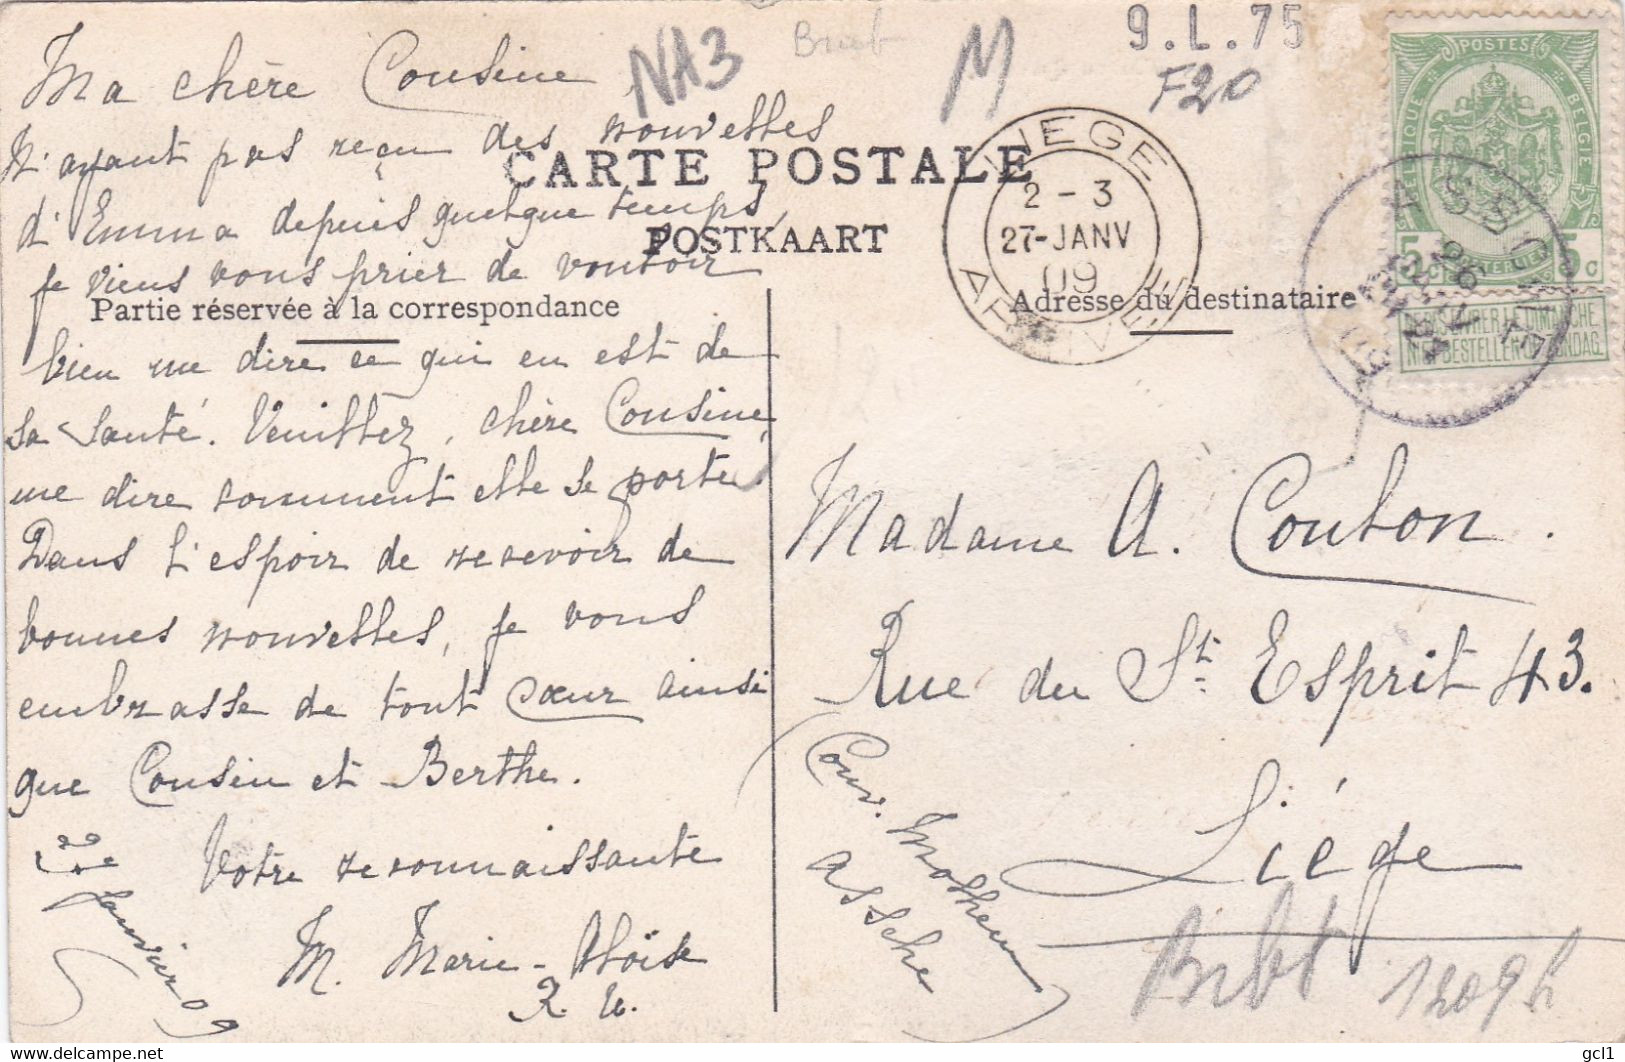 Ma chère Cousine
NA3
M
9.L.75
F20
N'ayant pas reçu des nouvelles
CARTE POSTALE
d'Emma depuis quelque temps,
POSTKAART
je viens vous prier de vouloir
Partie réservée à la correspondance
Adresse du destinataire
bien me dire ce qui en est de
sa santé. Veuillez, chère Cousine,
me dire comment elle se porte.
Dans l'espoir de recevoir de
bonnes nouvelles, je vous
embrasse de tout cœur ainsi
que Cousin et Berthe.
Votre reconnaissante
M. Marie-Aloïse
R. U.
Janvier 09
LIEGE
2-3
27-JANV
09
ARRIVEE
POSTES
BELGIQUE BELGIE
5c 5c
NE PAS LIVRER LE DIMANCHE
NIET BESTELLEN OP ZONDAG
Madame A. Coubon.
Rue du St. Esprit 43.
Liége
Couv. Mollem
Assche
Brbt
1209h
https://www.delcampe.net
gcl1